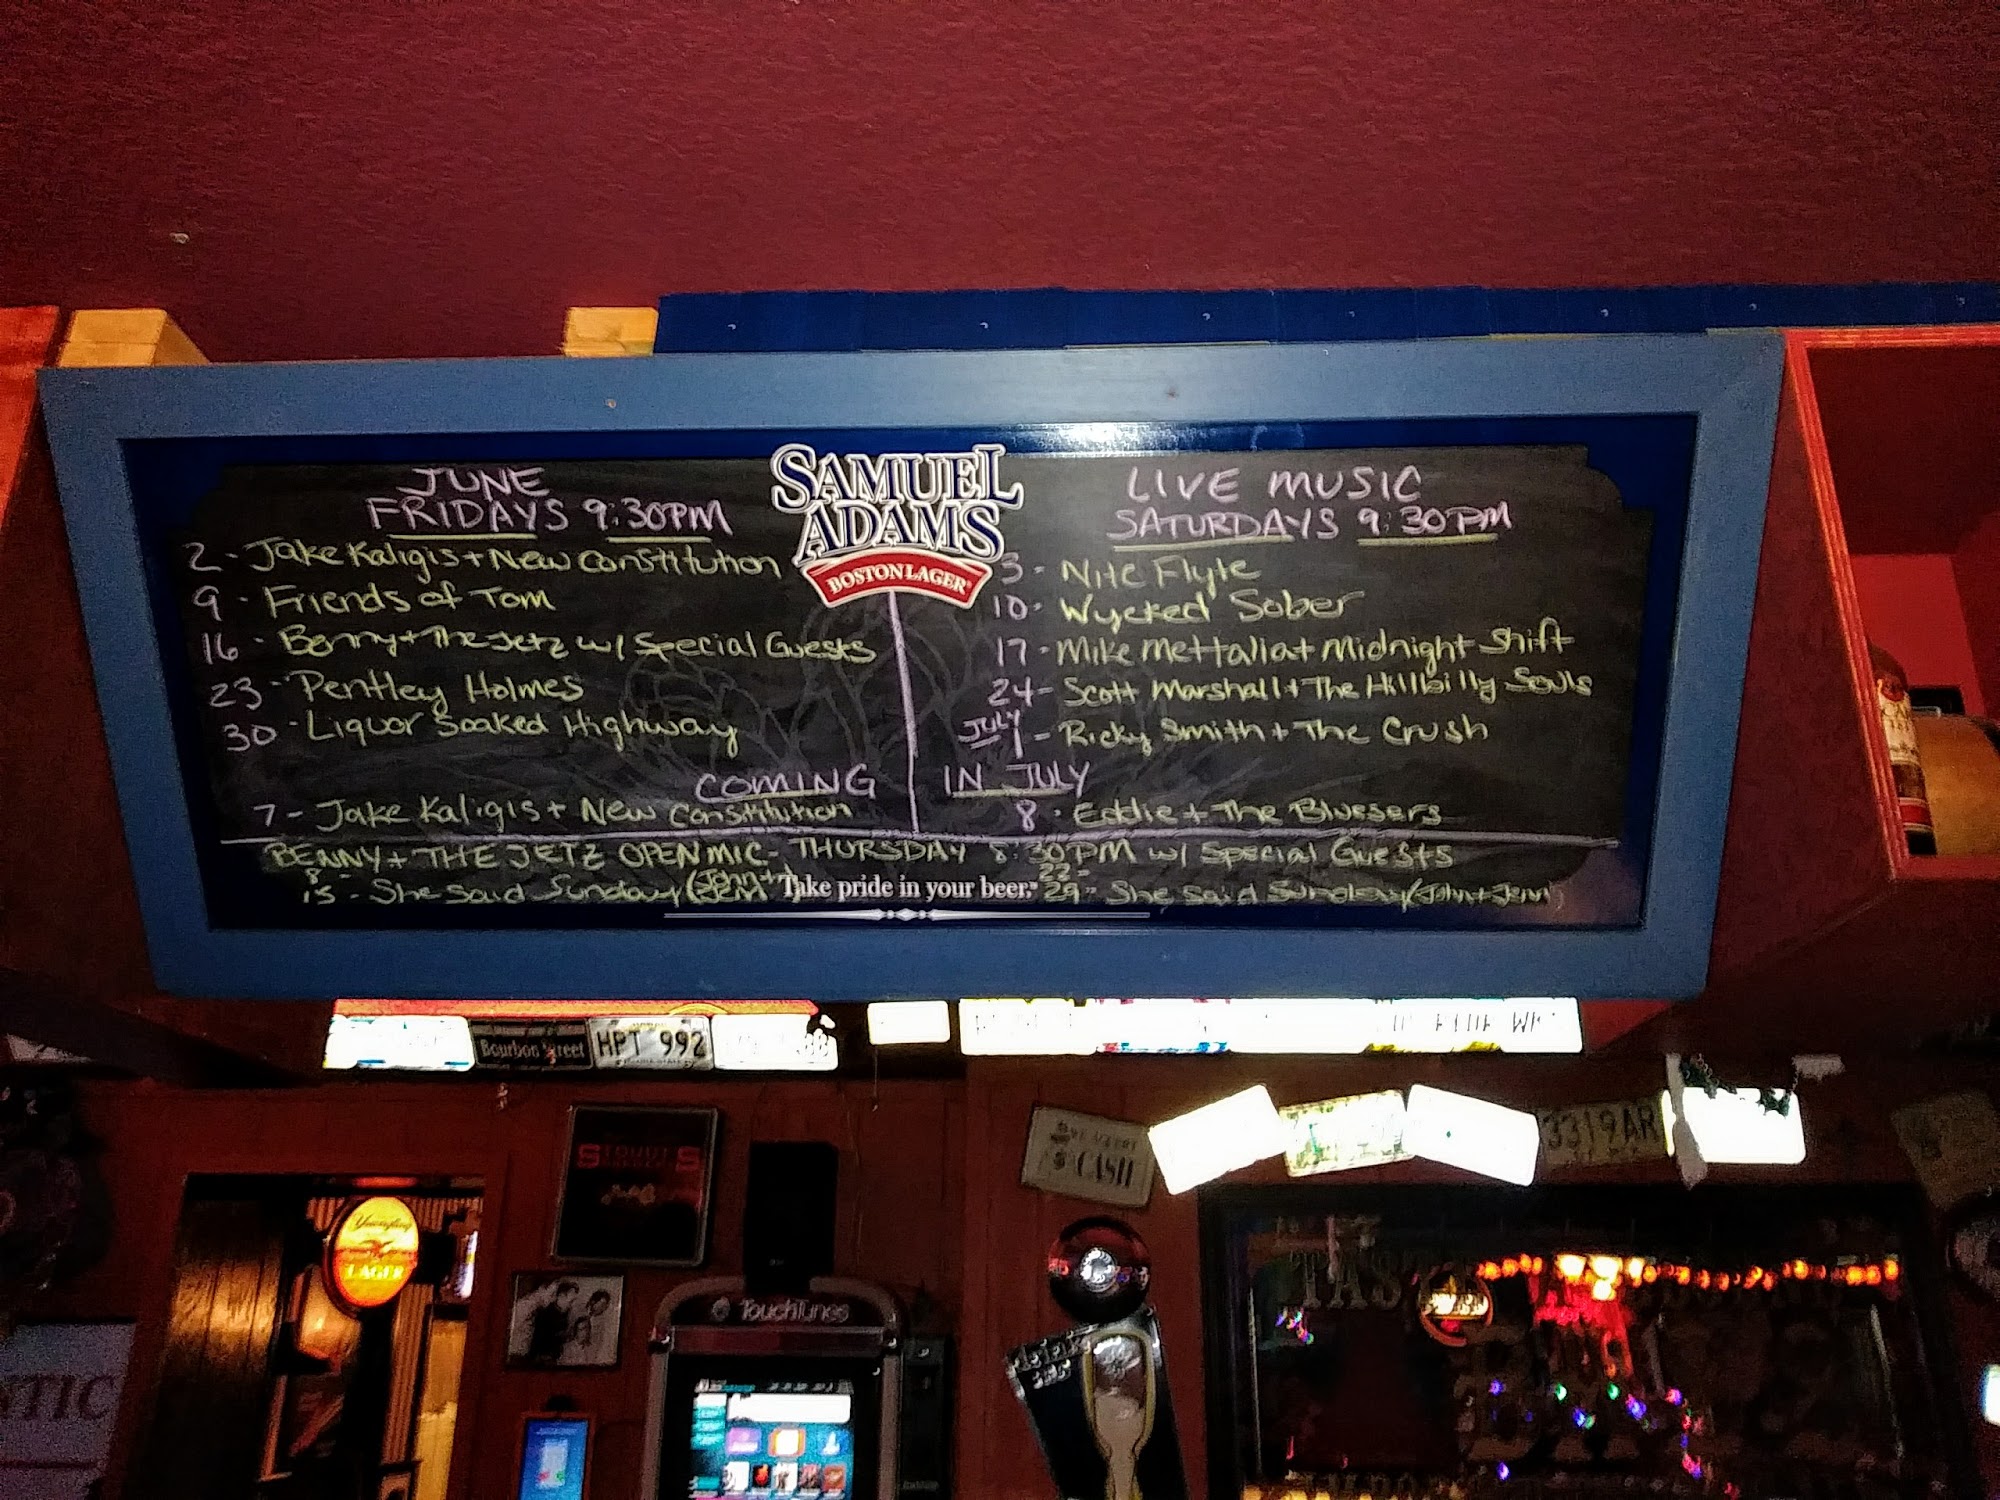 JUNE
FRIDAYS 9:30PM
2 - Jake Kaligis + New Constitution
9 - Friends of Tom
16 - Benny + The Jetz w/ Special Guests
23 - Pentley Holmes
30 - Liquor Soaked Highway
SAMUEL
ADAMS
BOSTON LAGER
LIVE MUSIC
SATURDAYS 9:30PM
3 - Nite Flyte
10 - Wycked Sober
17 - Mike Mettalia + Midnight Shift
24 - Scott Marshall + The Hillbilly Souls
JULY
1 - Ricky Smith + The Crush
COMING IN JULY
7 - Jake Kaligis + New Constitution
8 - Eddie + The Bluesers
BENNY + THE JETZ OPEN MIC - THURSDAY 8:30PM w/ Special Guests
8
15 - She Said Sunday (John + Jenn)
Take pride in your beer.
22 -
29 - She Said Sunday (John + Jenn)
Bourbon Street
HPT 992
3319AR
CASH
Yuengling
LAGER
TouchTunes
NTIC